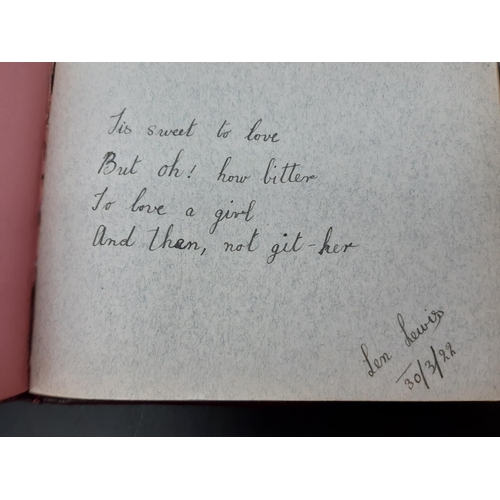 Tis sweet to love
But oh! how bitter
To love a girl
And then, not git-her
Len Lewis
30/3/22